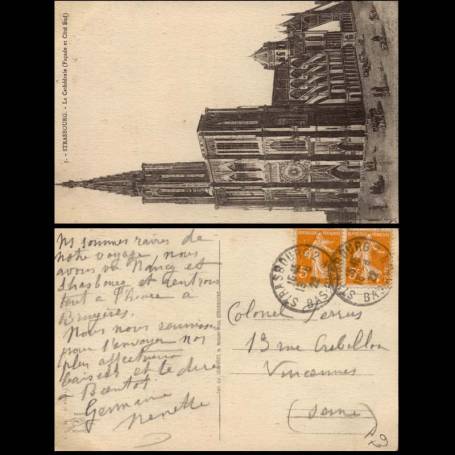 5. - STRASBOURG. - La Cathédrale (Façade et Côté Sud)
Ns sommes ravies de
notre voyage, nous
avons vu Nancy et
Strasbourg et rentrons
tout à l'heure à
Bruyères.
Nous nous réunissons
pour t'envoyer nos
plus affectueux
baisers et te dire
à Bientôt
Germaine
STRASBOURG
BAS
Colonel
13 rue Crébillon
Vincennes
(Seine)